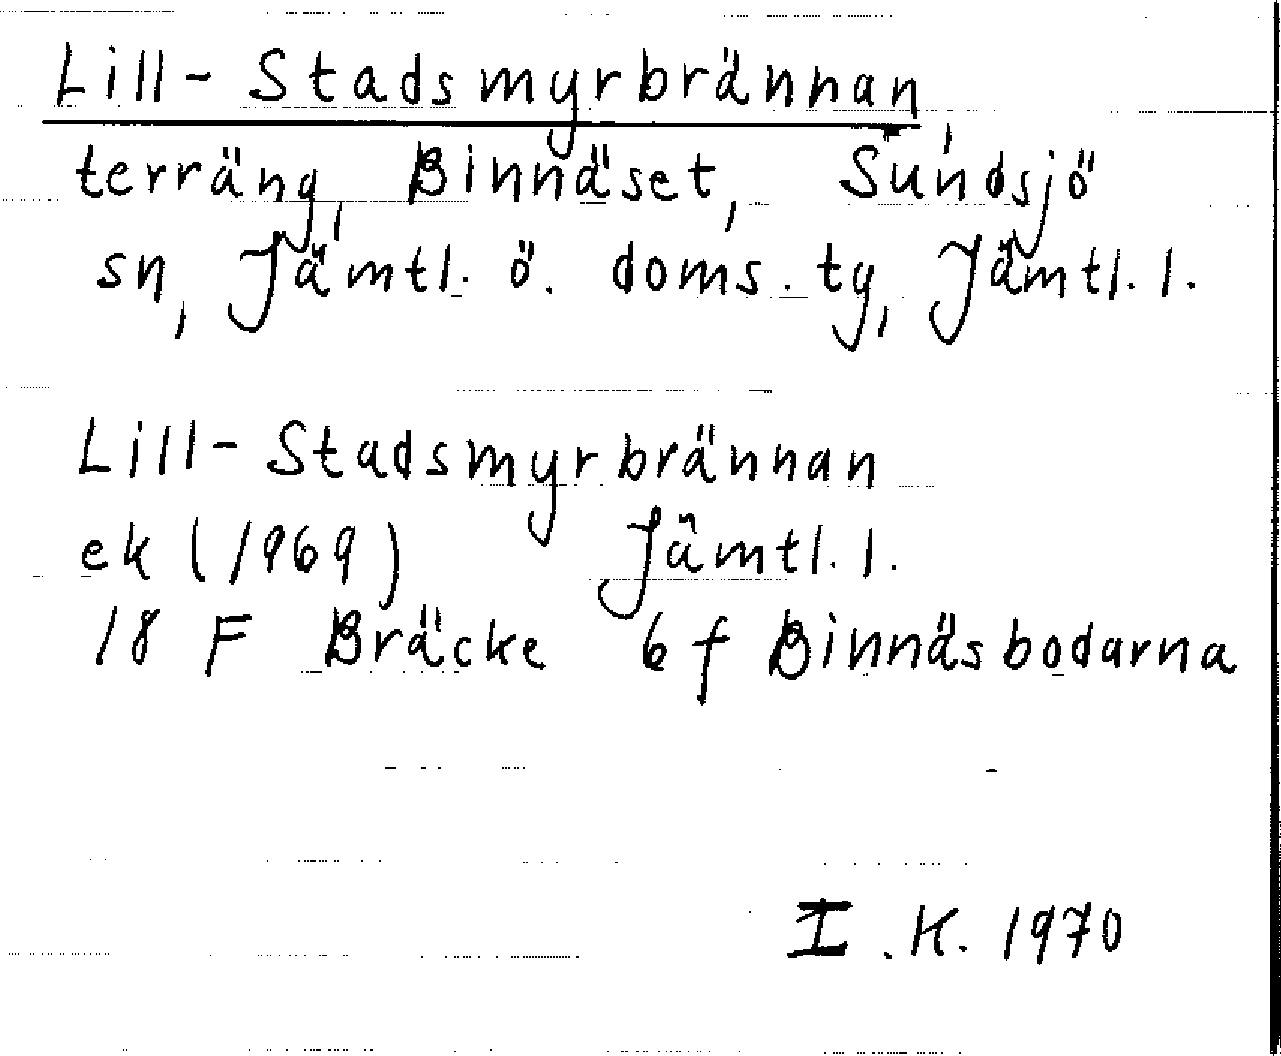 Lill-Stadsmyrbrännan,
terräng, Binnäset, Sundsjö
sn, Jämtl. ö. doms. ty, Jämtl. l.
Lill-Stadsmyrbrännan
ek (1969) Jämtl. l.
18 F Bräcke 6 f Binnäsbodarna
I. K. 1970